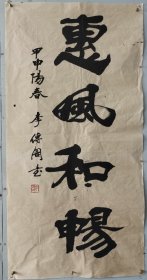 惠風和暢
甲申陽春 李傳周書